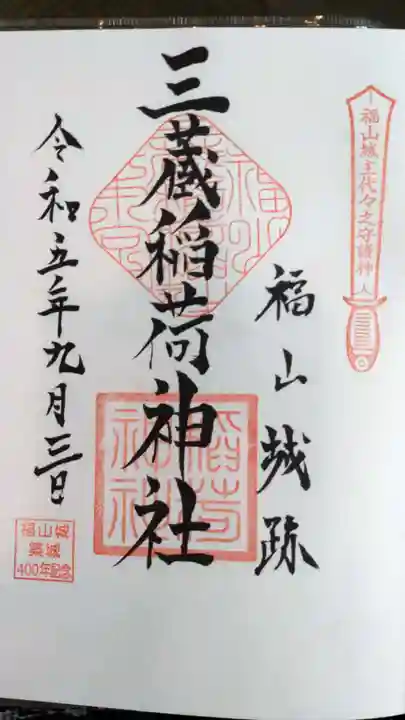 福山城主代々之守護神
福山城跡
三蔵稲荷神社
令和五年九月三日
福山城
築城
400年記念
稲荷
神社